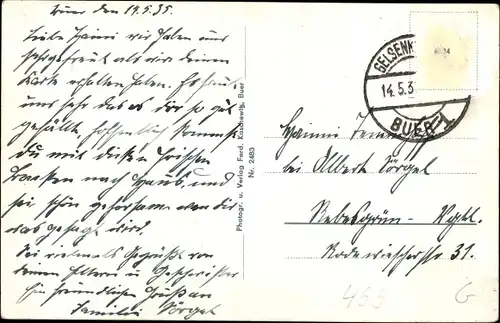 Buer den 14.5.35.
Liebe Hanni wir haben uns
sehr gefreut als wir deinen
Karte erhalten haben. Es freut
uns sehr das es dir so gut
gefällt, hoffentlich kommst
du mit dicken frischen
Backen nach Haus, und
sei schön gehorsam wen dir
was gesagt wird.
Sei vielmals Gegrüßt von
deinen Eltern u. Geschwister
Ein freundlichen Gruß an
Familie Görgel
Photogr. u. Verlag Ferd. Koschewitz, Buer
Nr. 2483
GELSENK
14.5.3
BUER
Hanni
bei Albert Görgel
Rebesgrün - Vgtl.
Rodewischerstr 31.
465
G